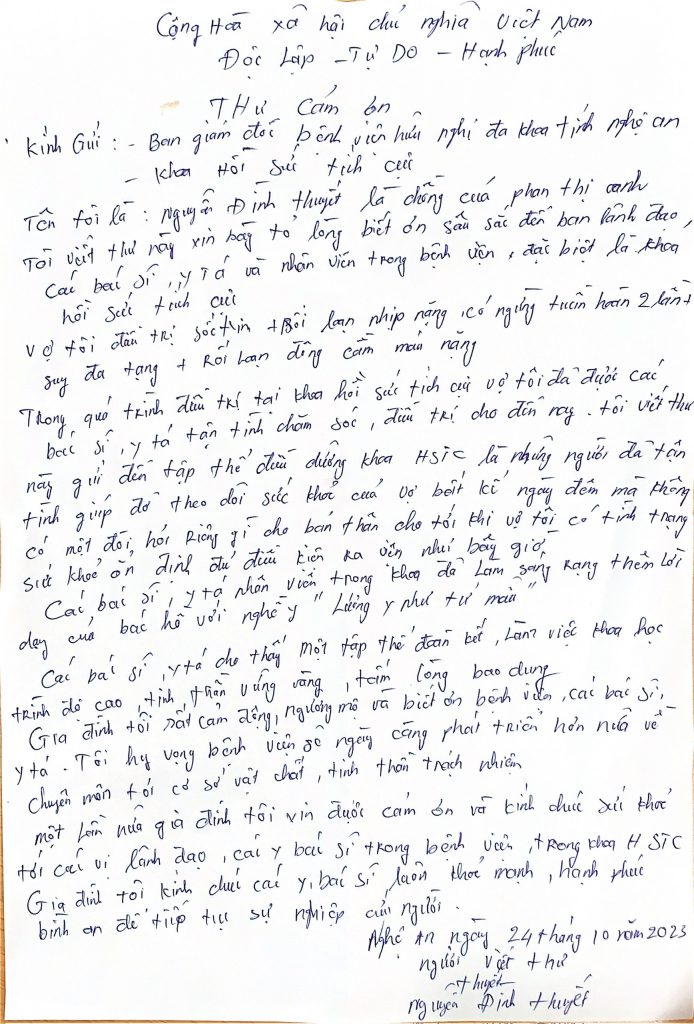 Cộng Hoà xã hội chủ nghĩa Việt Nam
Độc Lập - Tự Do - Hạnh phúc
THƯ Cảm ơn
Kính Gửi : - Ban giám đốc bệnh viện hữu nghị đa khoa tỉnh nghệ an
- Khoa Hồi sức tích cực
Tên tôi là : Nguyễn Đình Thuyết là chồng của phan thị oanh
Tôi viết thư này xin bày tỏ lòng biết ơn sâu sắc đến ban lãnh đạo,
Các bác sĩ, y tá và nhân viên trong bệnh viện, đặc biệt là khoa
hồi sức tích cực
Vợ tôi điều trị sốc tim + rối loạn nhịp nặng, có ngừng tuần hoàn 2 lần +
suy đa tạng + Rối loạn đông cầm máu nặng
Trong quá trình điều trị tại khoa hồi sức tích cực vợ tôi đã được các
bác sĩ, y tá tận tình chăm sóc, điều trị cho đến nay. tôi viết thư
này gửi đến tập thể điều dưỡng khoa HSTC là những người đã tận
tình giúp đỡ theo dõi sức khoẻ của vợ bất kể ngày đêm mà không
có một đòi hỏi riêng gì cho bản thân cho tới khi vợ tôi có tình trạng
sức khoẻ ổn định đủ điều kiện ra viện như bây giờ
Các bác sĩ, y tá nhân viên trong khoa đã làm sáng rạng thêm lời
dạy của bác hồ với nghề y "Lương y như từ mẫu"
Các bác sĩ, y tá cho thấy một tập thể đoàn kết, làm việc khoa học
trình độ cao, tinh thần vững vàng, tấm lòng bao dung
Gia đình tôi rất cảm động, ngưỡng mộ và biết ơn bệnh viện, các bác sĩ,
y tá. Tôi hy vọng bệnh viện sẽ ngày càng phát triển hơn nữa về
chuyên môn tới cơ sở vật chất, tinh thần trách nhiên
một lần nữa gia đình tôi xin được cảm ơn và kính chúc sức khoẻ
tới các vị lãnh đạo, các y bác sĩ trong bệnh viện, trong khoa HSTC
Gia đình tôi kính chúc các y, bác sĩ luôn khoẻ mạnh, hạnh phúc
bình an để tiếp tục sự nghiệp cứu người.
Nghệ An ngày 24 tháng 10 năm 2023
người viết thư
thuyết
Nguyễn Đình Thuyết